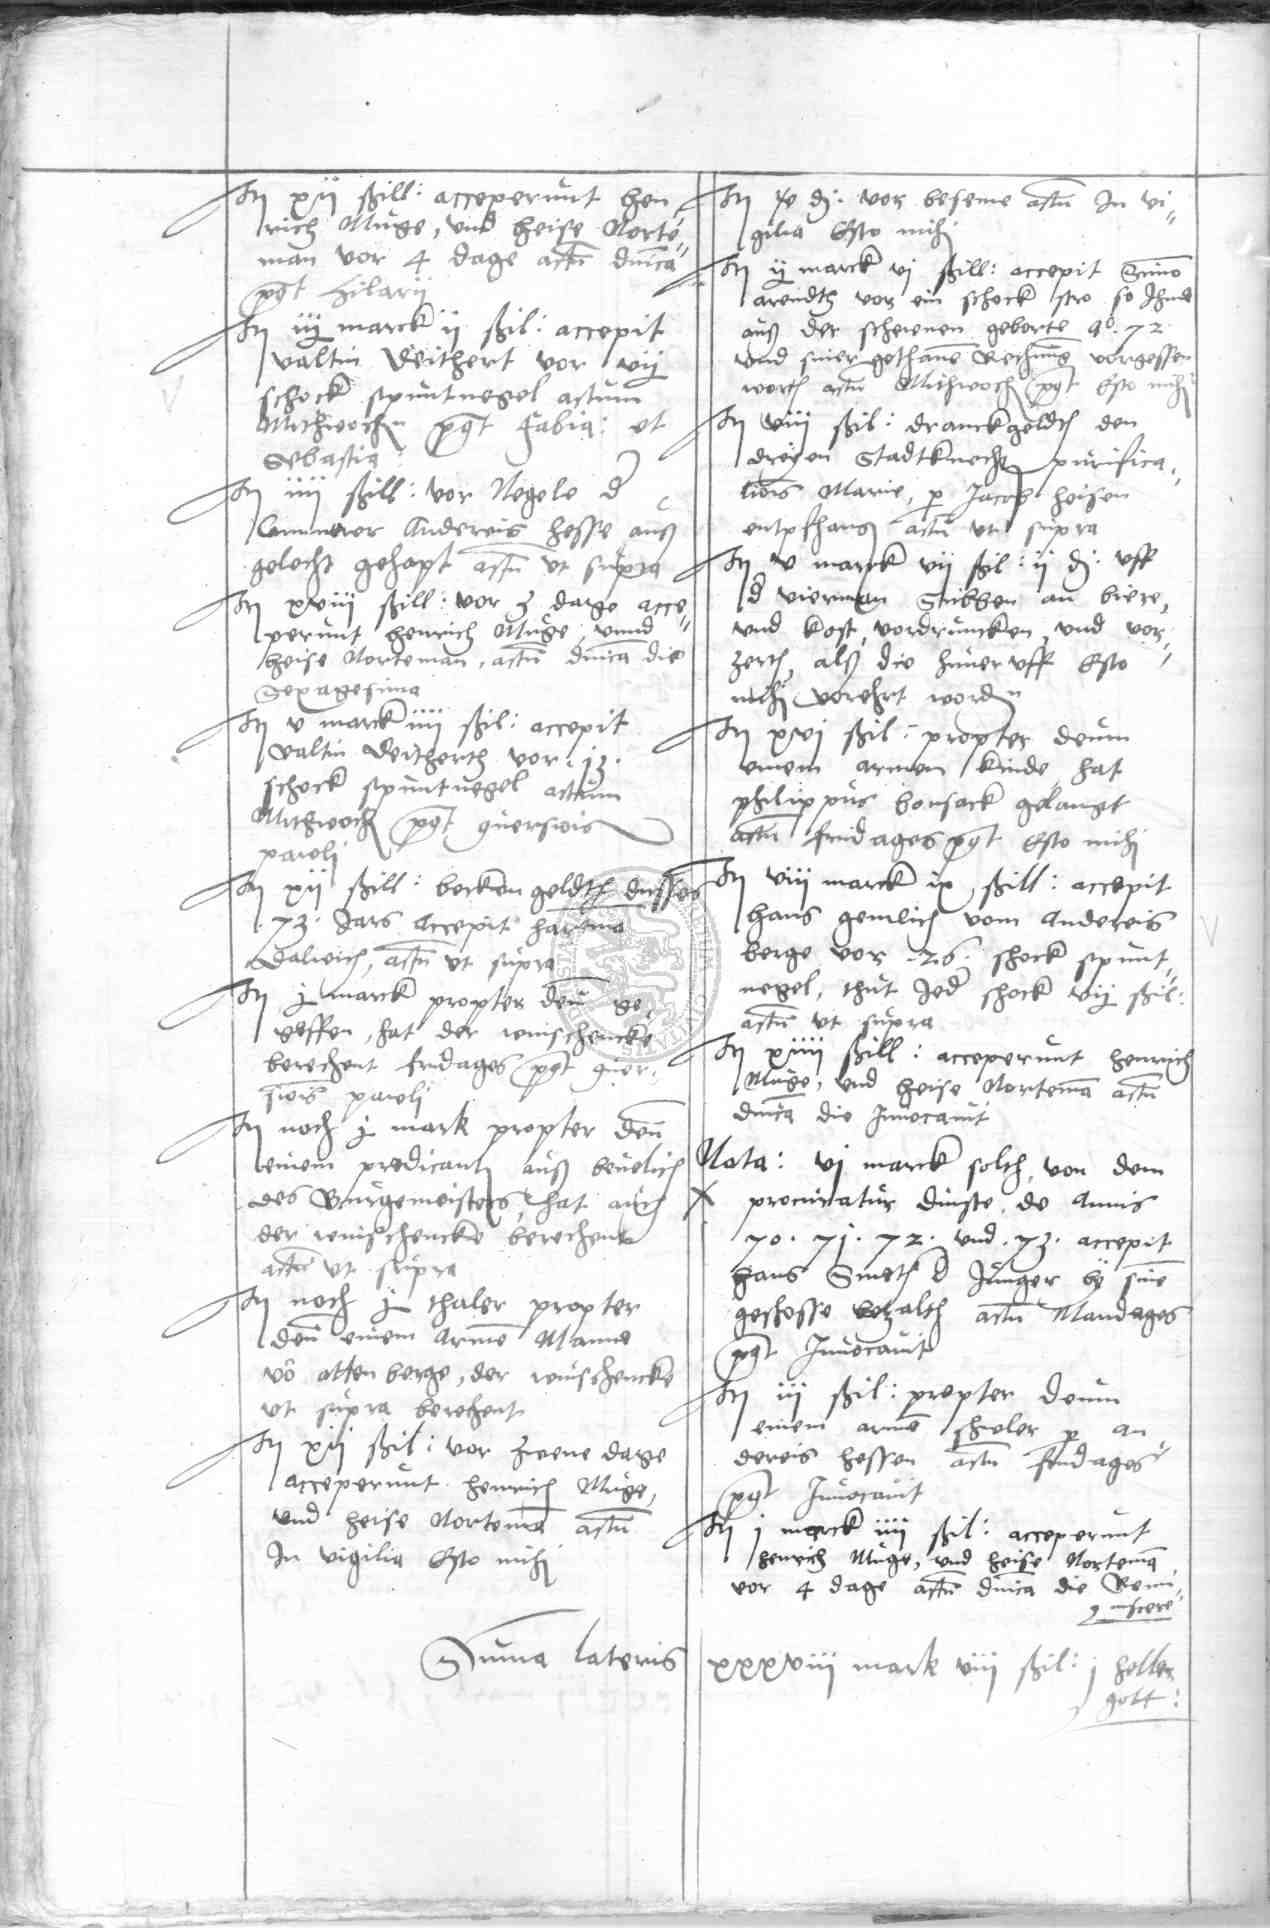 It xij ßill: acceperunt Hen
rich Muge, und Heise Norte
man vor 4 dage actū dnica
post Hilarij
It iij marck ij ßil: accepit
valtin Deithert vor vij
schock spuntnegel actum
Mithwochn post Fabia: et
Sebastia
It iiij ßill: vor Negele d
Cemmerer Andereis Hesse auß
gelecht gehapt actū ut supra
It xviij ßill: vor 3 dage acce
perunt Henrich Muge, unnd
Heise Norteman, actū dnica die
Sexagesima
It v marck iiij ßil: accepit
valtin Deitherth vor 13.
schock spuntnegel actum
Mithwoch post
pauli
It xij ßill: becken geldth dusses
.73. Jars Accepit Hartma
Dalwich, actū ut supra
It j marck propter deū ge
geffen, hat der winschencke
berechent fridages post
pauli
It noch j mark propter deū
einem predicanth auß bevelich
des Burgemeisters, hat auch
der winschencke berechent
actū ut supra
It noch j thaler propter
deū einem Armē Manne
vō Attenberge, der winschencke
ut supra berechent
It xij ßil: vor zwene dage
Acceperunt Henrich Muge,
und Heise Nortemā actū
In vigilia Esto mihi
It dj. vor beseme actū In vi
gilia Esto mihi
It ij marck vj ßill: accepit Simō
Arendth vor ein schock stro so Ihme
auß der scheuren geborte Aō. 72.
und siner gethanē Rechnūg vorgessen
worth actū Mithwoch post Esto mihi
It viij ßil: dranckgeldth den
dreyen Stadtknecht purifica
tiōis Marie, p Jacop Heisen
entpfhang actū ut supra
It v marck vij ßil: ij dj. uff
d vierman Stubben an biere,
und kost, vordruncken, und vor
zerth, alß die uff Esto
mihi vorehrt wordn
It xvj ßil: propter deum
einem armen kinde, hat
philippus bonsack gelanget
actū fridages post Esto mihi
It viij marck ix ßill: accepit
Hans gemlich vom Andereis
berge vor .26. schock spunt
negel, thut Jed schock vij ßil:
actū ut supra
It xiiij ßill: acceperunt Henrich
Muge, und Heise Nortemā actū
dnica die Invocavit
Nota: vj marck solth, von dem
procuratur dinste, de Annis
70. 71. 72. und .73. accepit
Hans Smeth d Junger by sinē
geschosse betzalth actū Mandages
post Invocavit
It iij ßil: propter deum
einem armē schoeler p An
dereis Hessen actū fridages
post Invocavit
It j marck iiij ßil: acceperunt
Henrich Muge, und Heise Nortemā
vor 4 dage actū dnica die Remi
niscere
Suma lateris xxxviij mark viij ßil: j heller
gott: